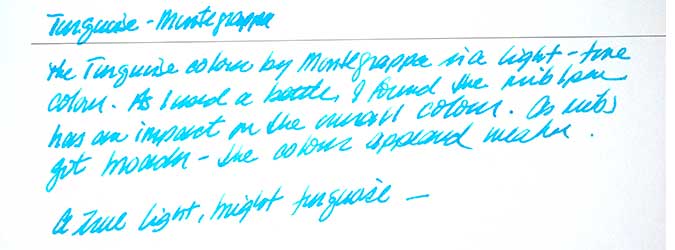 Turquoise - Montegrappa
The Turquoise colour by Montegrappa is a light-tone
colour. As I used a bottle, I found the nib/pen
has an impact on the overall colour. As nibs
got broader - the colour appeared weaker.
A true light, bright turquoise -